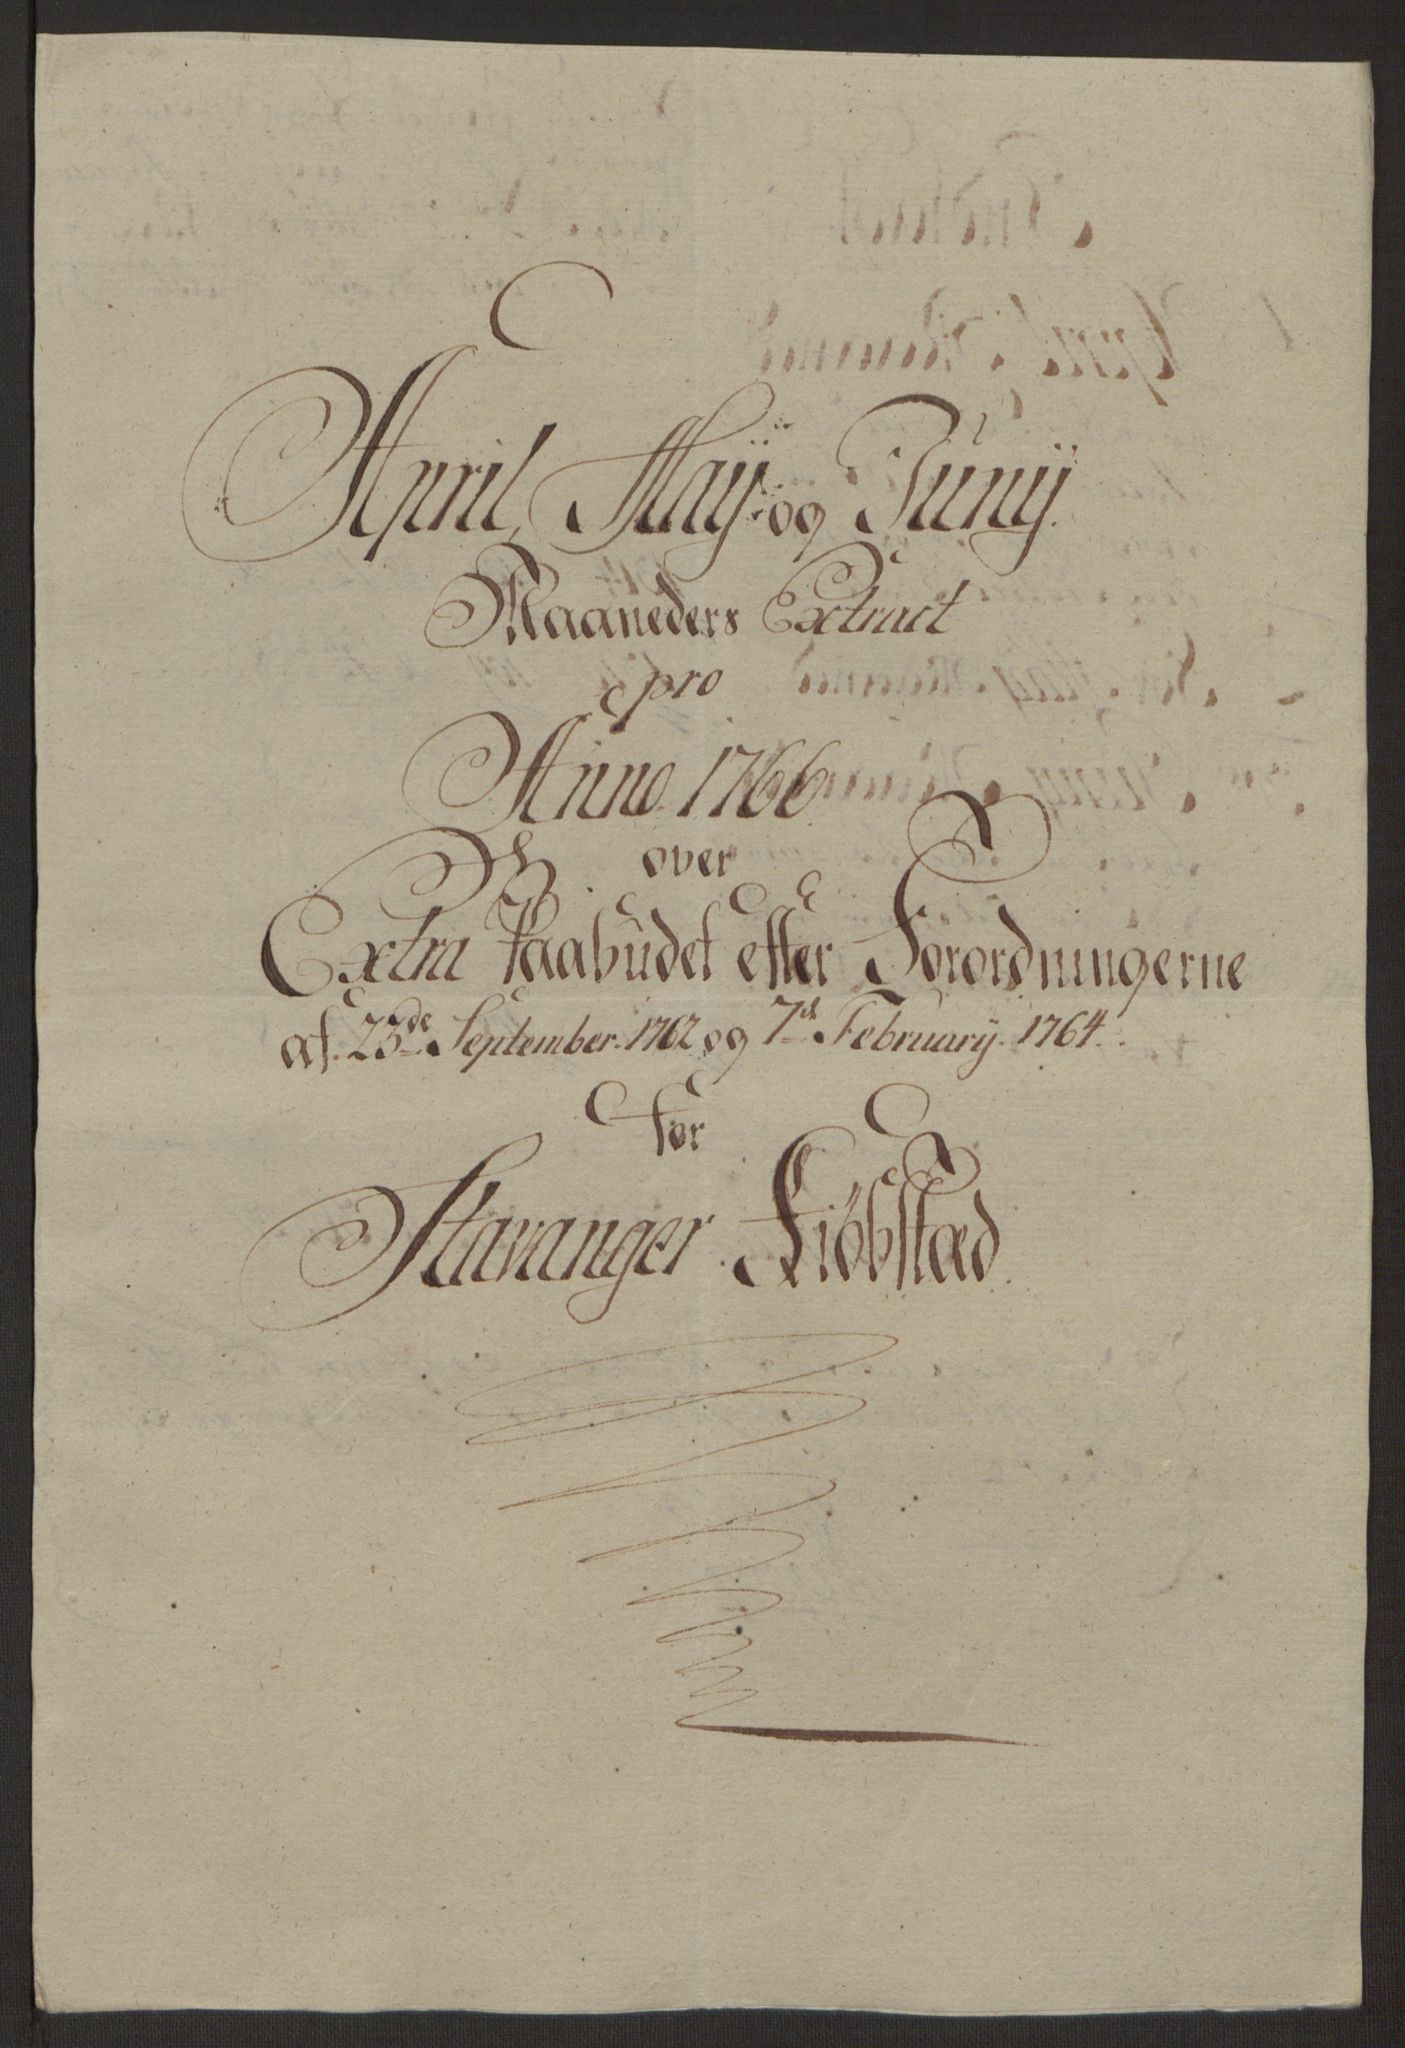 April, Maÿ og Junÿ.
Maaneders Extract
pro
Anno. 1766.
over
Extra Paabudet efter Forordningerne
af. 23de September. 1762 og 7de Februarÿ. 1764.
for
Stavanger Kiöbstæd.